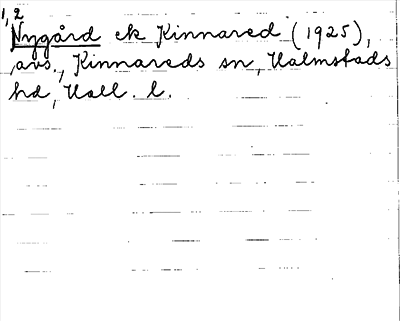 1,2
Nygård ek Kinnared (1925),
avs., Kinnareds sn, Halmstads
hd, Hall. l.